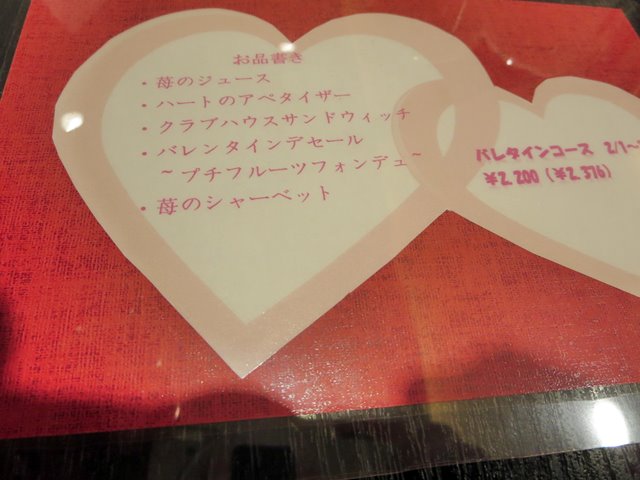 お品書き
・苺のジュース
・ハートのアペタイザー
・クラブハウスサンドウィッチ
・バレンタインデセール
～プチフルーツフォンデュ～
・苺のシャーベット
バレタインコース 2/1～
¥2,200 (¥2,376)